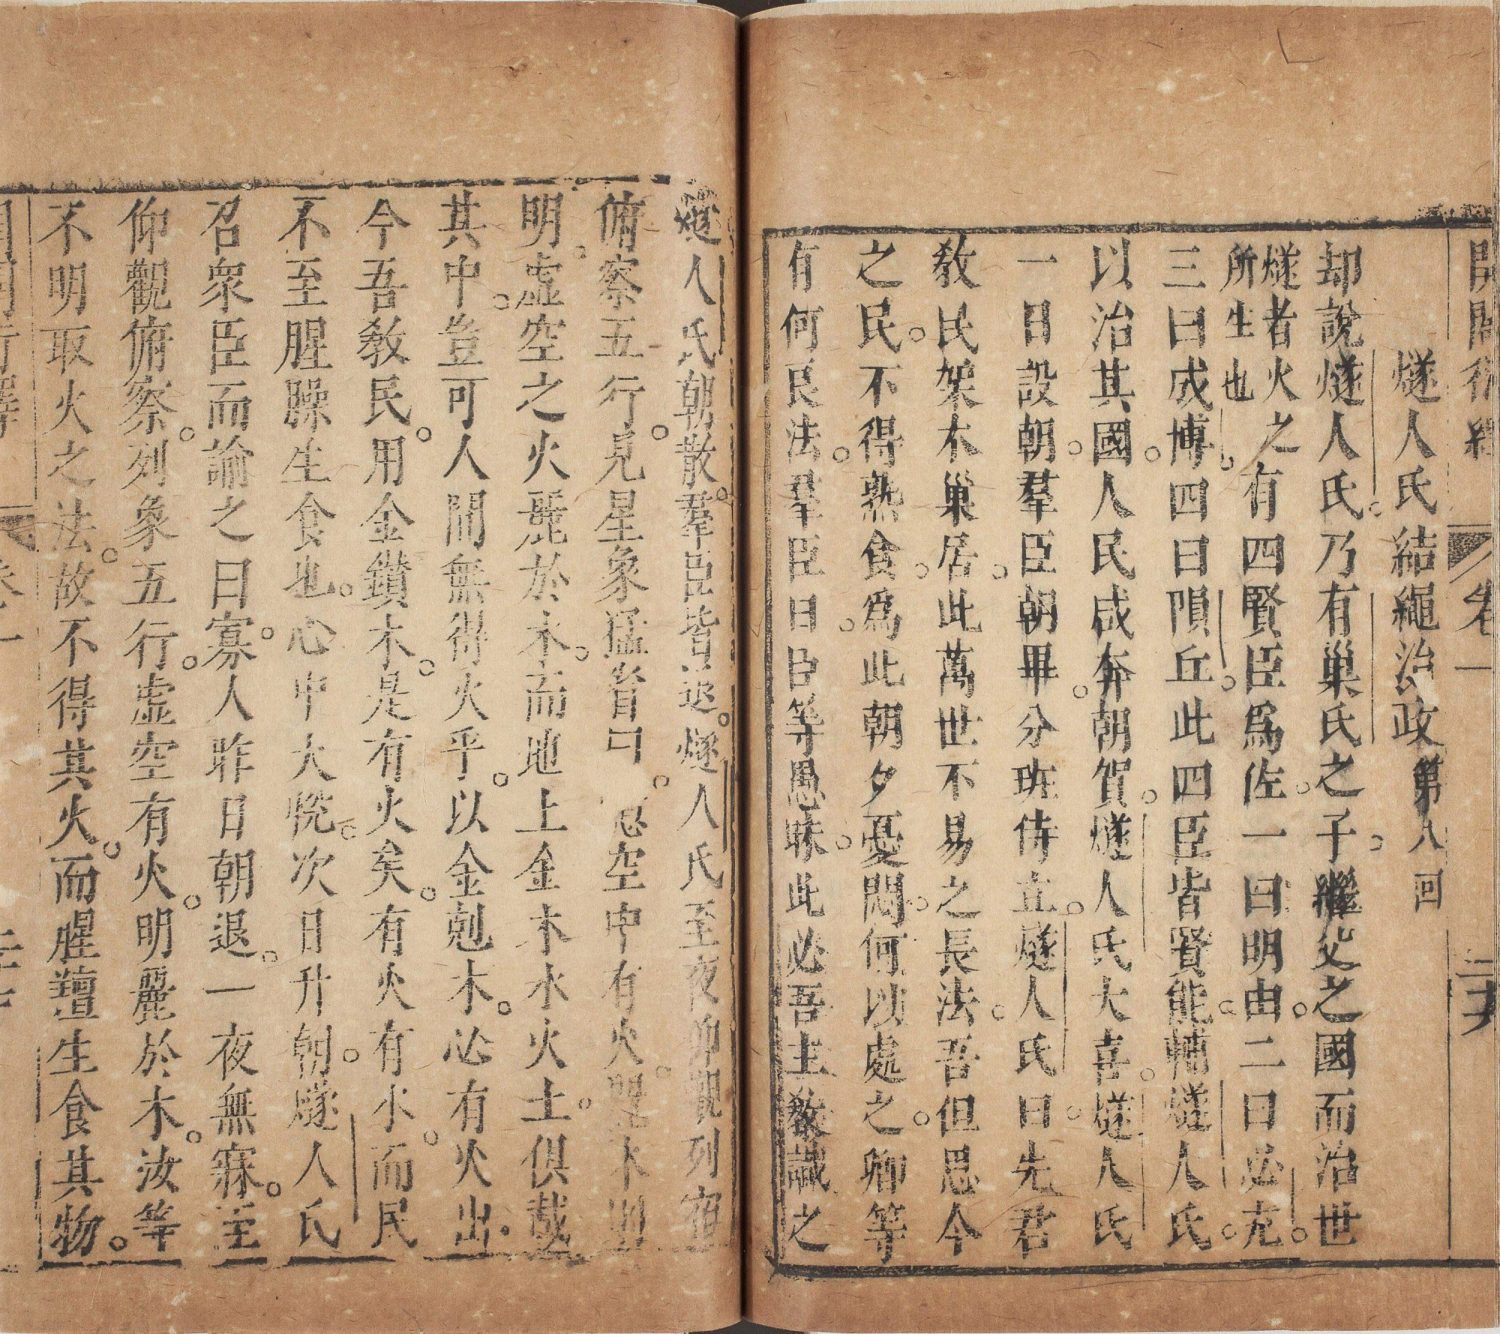 開闢衍繹 卷一 二十六
燧人氏結繩治政 第八回
却說燧人氏乃有巢氏之子繼父之國而治世
燧者火之所生也有四賢臣爲佐一曰明由二曰必充
三曰成博四曰隕丘此四臣皆賢能輔燧人氏
以治其國人民咸奔朝賀燧人氏大喜燧人氏
一日設朝羣臣朝畢分班侍立燧人氏曰先君
教民架木巢居此萬世不易之長法吾但思今
之民不得熟食爲此朝夕憂悶何以處之卿等
有何良法羣臣曰臣等愚昧此必吾主教誠之
燧人氏朝散羣臣皆退燧人氏至夜仰觀列宿
俯察五行見星象猛省曰 空中有火麗木則
明虛空之火麗於木而地上金木水火土俱載
其中豈可人間無得火乎以金剋木必有火出
今吾教民用金鑽木是有火矣有火有水而民
不至腥臊生食也心中大悅次日升朝燧人氏
召衆臣而論之曰寡人昨日朝退一夜無寐至
仰觀俯察列象五行虛空有火明麗於木汝等
不明取火之法故不得其火而腥羶生食其物